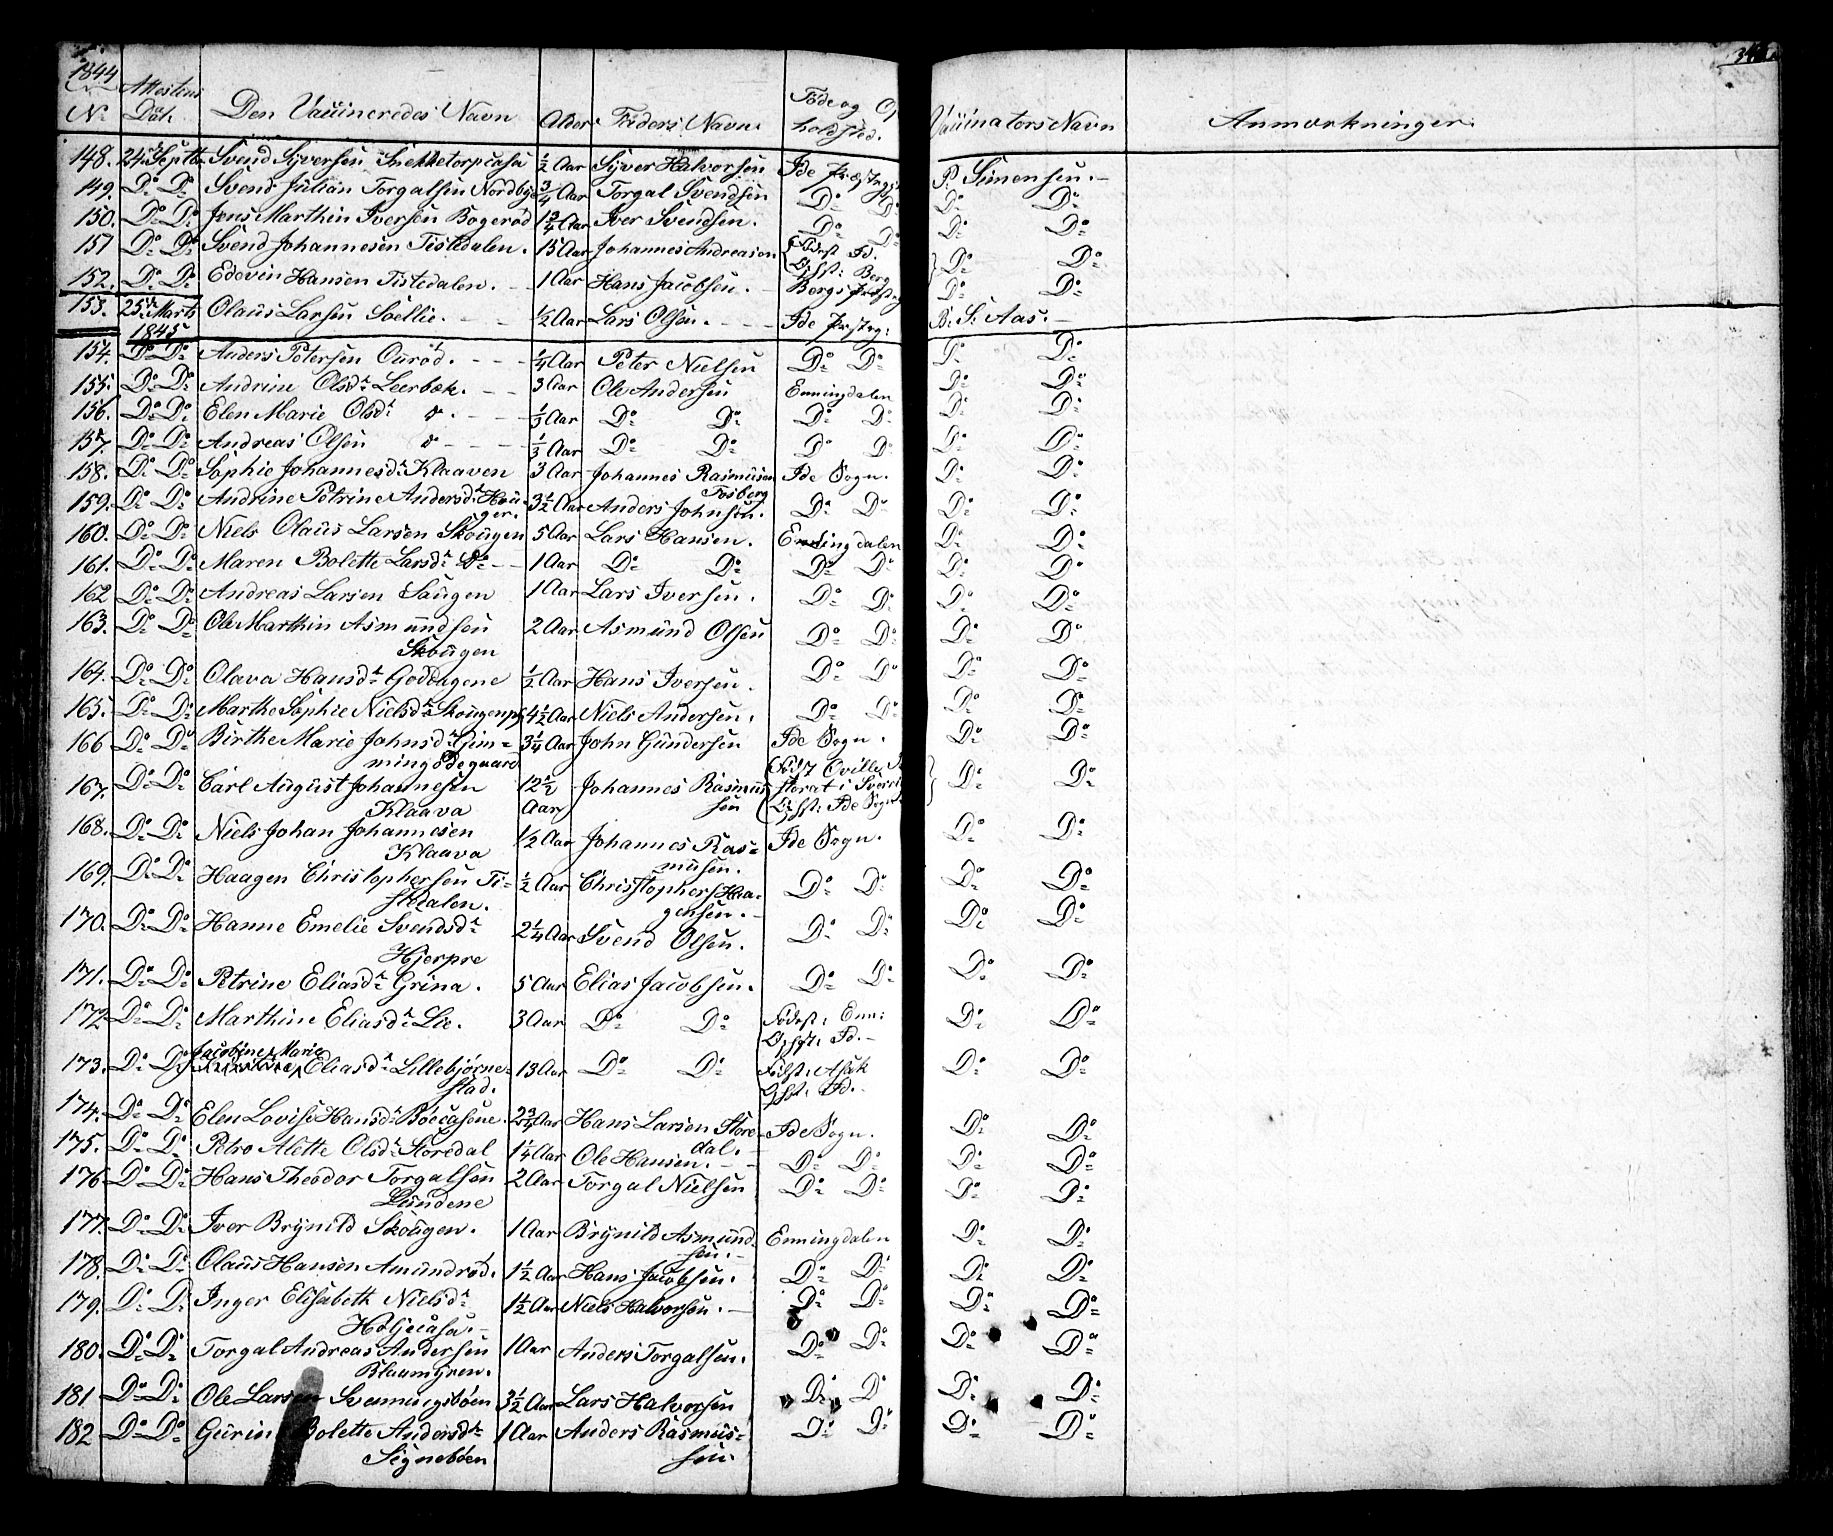 1844
No Attestens Dat. Den Vacineredes Navn Alder Faders Navn. Føde og Op holdsted. Vacinators Navn Anmærkninger.
148. 24de Septbr Svend Syversen Snekketorpcasa ½ Aar Syver Halvorsen Ide Præstegj P. Simensen.
149. Do Do Svend Julian Torgalsen Nordbye ¾ Aar Torgal Svendsen Do Do Do Do
150. Do Do Jens Marthin Iversen Bogerød 1¾ Aar Iver Svendsen. Do Do Do Do
151 Do Do Svend Johannesen Tistedalen. 15 Aar Johannes Andreasen Fødest Id. Ophst: Berg Do Do
152. Do Do Edevin Hansen Tistedalen. 1 Aar Hans Jacobsen. Bergs Præsteg Do Do
153. 25de Marts Olaus Larsen Sællie. ½ Aar Lars Olsen. Ide Præsteg: B. S. Aas.
1845
154. Do Do Anders Petersen Ourød. ¼ Aar Peter Nielsen Do Do Do Do
155. Do Do Andrine Olsdr Leerbæk. 3 Aar Ole Andersen Enningdalen Do Do
156. Do Do Elen Marie Olsdr do. ⅓ Aar Do Do Do Do Do Do
157. Do Do Andreas Olsen do ⅓ Aar Do Do Do Do Do Do
158. Do Do Sophie Johannesdr Klaaven 3 Aar Johannes Rasmusen Ide Sogn. Do Do
Tosberg
159. Do Do Andrine Petrine Andersdr Hau- 3½ Aar Anders Johnsen. Do Do Do Do
ger.
160. Do Do Niels Olaus Larsen Skougen 5 Aar Lars Hansen. Enningdalen Do Do
161. Do Do Maren Bolette Larsdr Do 1 Aar Do Do Do Do Do Do
162 Do Do Andreas Larsen Saugen 1 Aar Lars Iversen. Do Do Do Do
163. Do Do Ole Marthin Asmundsen 2 Aar Asmund Olsen Do Do Do Do
Skougen
164. Do Do Olava Hansdr Goddagene ½ Aar Hans Iversen. Do Do Do Do
165. Do Do Marthe Sophie Nielsdr Skougenpl 4½ Aar Niels Andersen. Do Do Do Do
166 Do Do Birthe Marie Johnsdr Gim= 3¼ Aar John Gundersen Ide Sogn. Do Do
mingødegaard
167. Do Do Carl August Johannesen 12½ Johannes Rasmu Fødst Qville Pa storat i Sverri Do Do
Klaava Aar sen Ophst: Ide Sogn
168. Do Do Niels Johan Johannesen ½ Aar Johannes Ras= Ide Sogn. Do Do
Klaava musen.
169. Do Do Haagen Christophersen Ti= ½ Aar Christopher Haa- Do Do Do Do
stedalen. gensen.
170. Do Do Hanne Emelie Svendsdr 2¼ Aar Svend Olsen. Do Do Do Do
Hjerpre
171. Do Do Petrine Eliasdr Grina. 5 Aar Elias Jacobsen. Do Do Do Do
172 Do Do Marthine Eliasdr Lie. 3 Aar Do Do Fødest: Enn: Ophst: Id. Do Do
173. Do Do Jacobine Marie Eliasdr Lillebjørne= 13 Aar Do Do Fødst: Asak Do Do
stad. Ophst: Id.
174. Do Do Elen Lovise Hansdr Bøecasene. 2¾ Aar Hans Larsen Store- Ide Sogn. Do Do
dal.
175. Do Do Petro Alette Olsdr Storedal 1¼ Aar Ole Hansen. Do Do Do Do
176 Do Do Hans Theodor Torgalsen 2 Aar Torgal Nielsen Do Do Do Do
Lundene
177. Do Do Iver Brynild Skougen. 1 Aar Brynild Asmund- Enningdalen Do Do
sen.
178. Do Do Olaus Hansen Amundrød. 1½ Aar Hans Jacobsen. Do Do Do Do
179. Do Do Inger Elisabeth Nielsdr 1½ Aar Niels Halvorsen. Do Do Do Do
Høljecasa.
180. Do Do Torgal Andreas Andersen 1 Aar Anders Torgalsen. Do Do Do Do
Blaamyren.
181 Do Do Ole Larsen Svenningsbøen 3½ Aar Lars Halvorsen Do Do Do Do
182 Do Do Gurin Bolette Andersdr 1 Aar Anders Rasmus= Do Do Do Do
Signebøen sen.